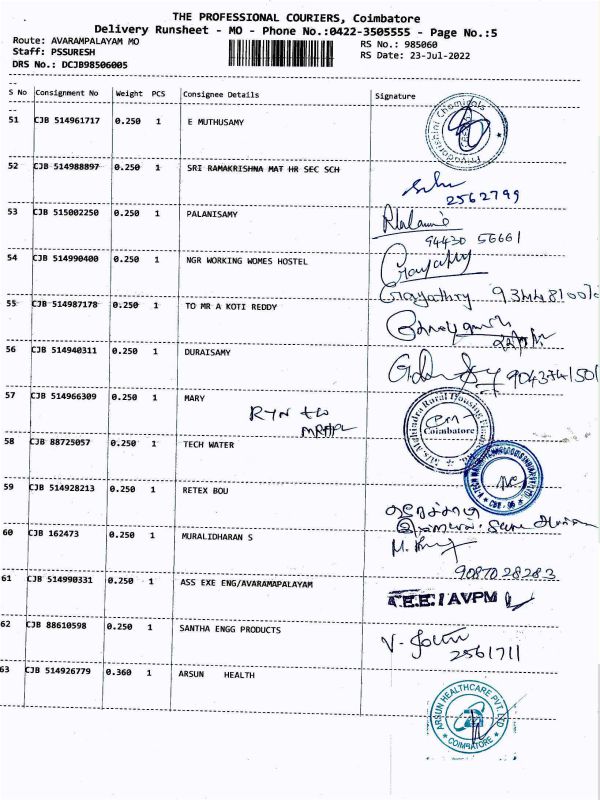 THE PROFESSIONAL COURIERS, Coimbatore
Delivery Runsheet - MO - Phone No.:0422-3505555 - Page No.:5
Route: AVARAMPALAYAM MO
RS No.: 985060
Staff: PSSURESH
RS Date: 23-Jul-2022
DRS No.: DCJB98506005
S No Consignment No Weight PCS Consignee Details Signature
51 CJB 514961717 0.250 1 E MUTHUSAMY
52 CJB 514988897 0.250 1 SRI RAMAKRISHNA MAT HR SEC SCH
2562799
53 CJB 515002250 0.250 1 PALANISAMY
94430 56661
54 CJB 514990400 0.250 1 NGR WORKING WOMES HOSTEL
Gayathry
Gayathry
55 CJB 514987178 0.250 1 TO MR A KOTI REDDY
56 CJB 514940311 0.250 1 DURAISAMY
57 CJB 514966309 0.250 1 MARY
RTN to
Coimbatore
58 CJB 88725057 0.250 1 TECH WATER
59 CJB 514928213 0.250 1 RETEX BOU
60 CJB 162473 0.250 1 MURALIDHARAN S
9087028283
61 CJB 514990331 0.250 1 ASS EXE ENG/AVARAMAPALAYAM
A.E.E. / AVPM
62 CJB 88610598 0.250 1 SANTHA ENGG PRODUCTS
2561711
63 CJB 514926779 0.360 1 ARSUN HEALTH
ARSUN HEALTHCARE PVT. LTD
COIMBATORE